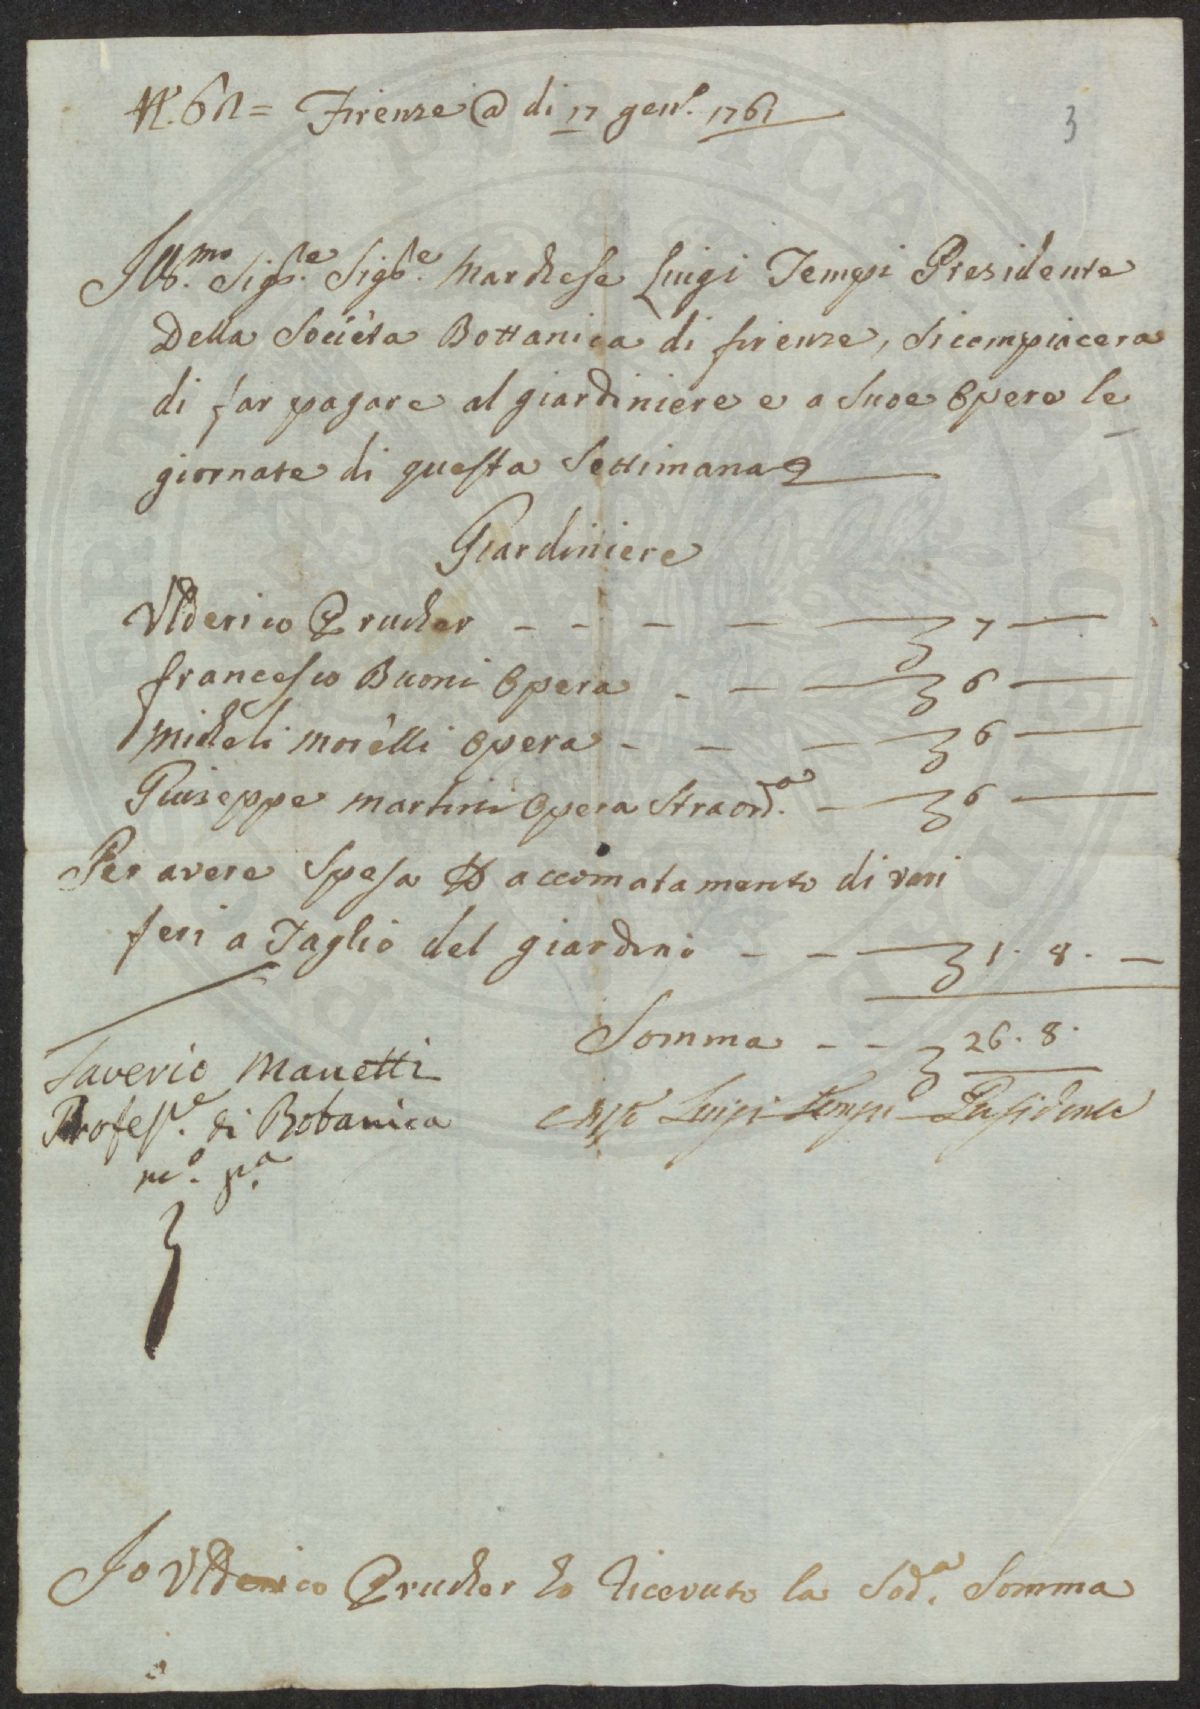 N.° 61 = Firenze @ di 17 gen.º 1761
3
Ill.mo Sig.re Sig.re Marchese Luigi Tempi Presidente
Della Socièta Bottanica di firenze, si compiacera
di far pagare al giardiniere e a Suoe Opere le
giornate di questa Settimana
Giardiniere
Ulderico Prucher - - - - 7 -
francesco Buoni Opera - - - 6 -
Micheli Morèlli Opera - - - 6 -
Giuseppe Martini Opera Straord.a - 6 -
Per avere Spesa accomatamento di vari
feri a Taglio del giardino - - - 1. 8. -
Somma - - 26. 8.
Saverio Manetti
Profes.re di Botanica
m.o p.a
Luigi Tempi Presidente
Io Ulderico Prucher ho Ricevuto la Sod.a Somma